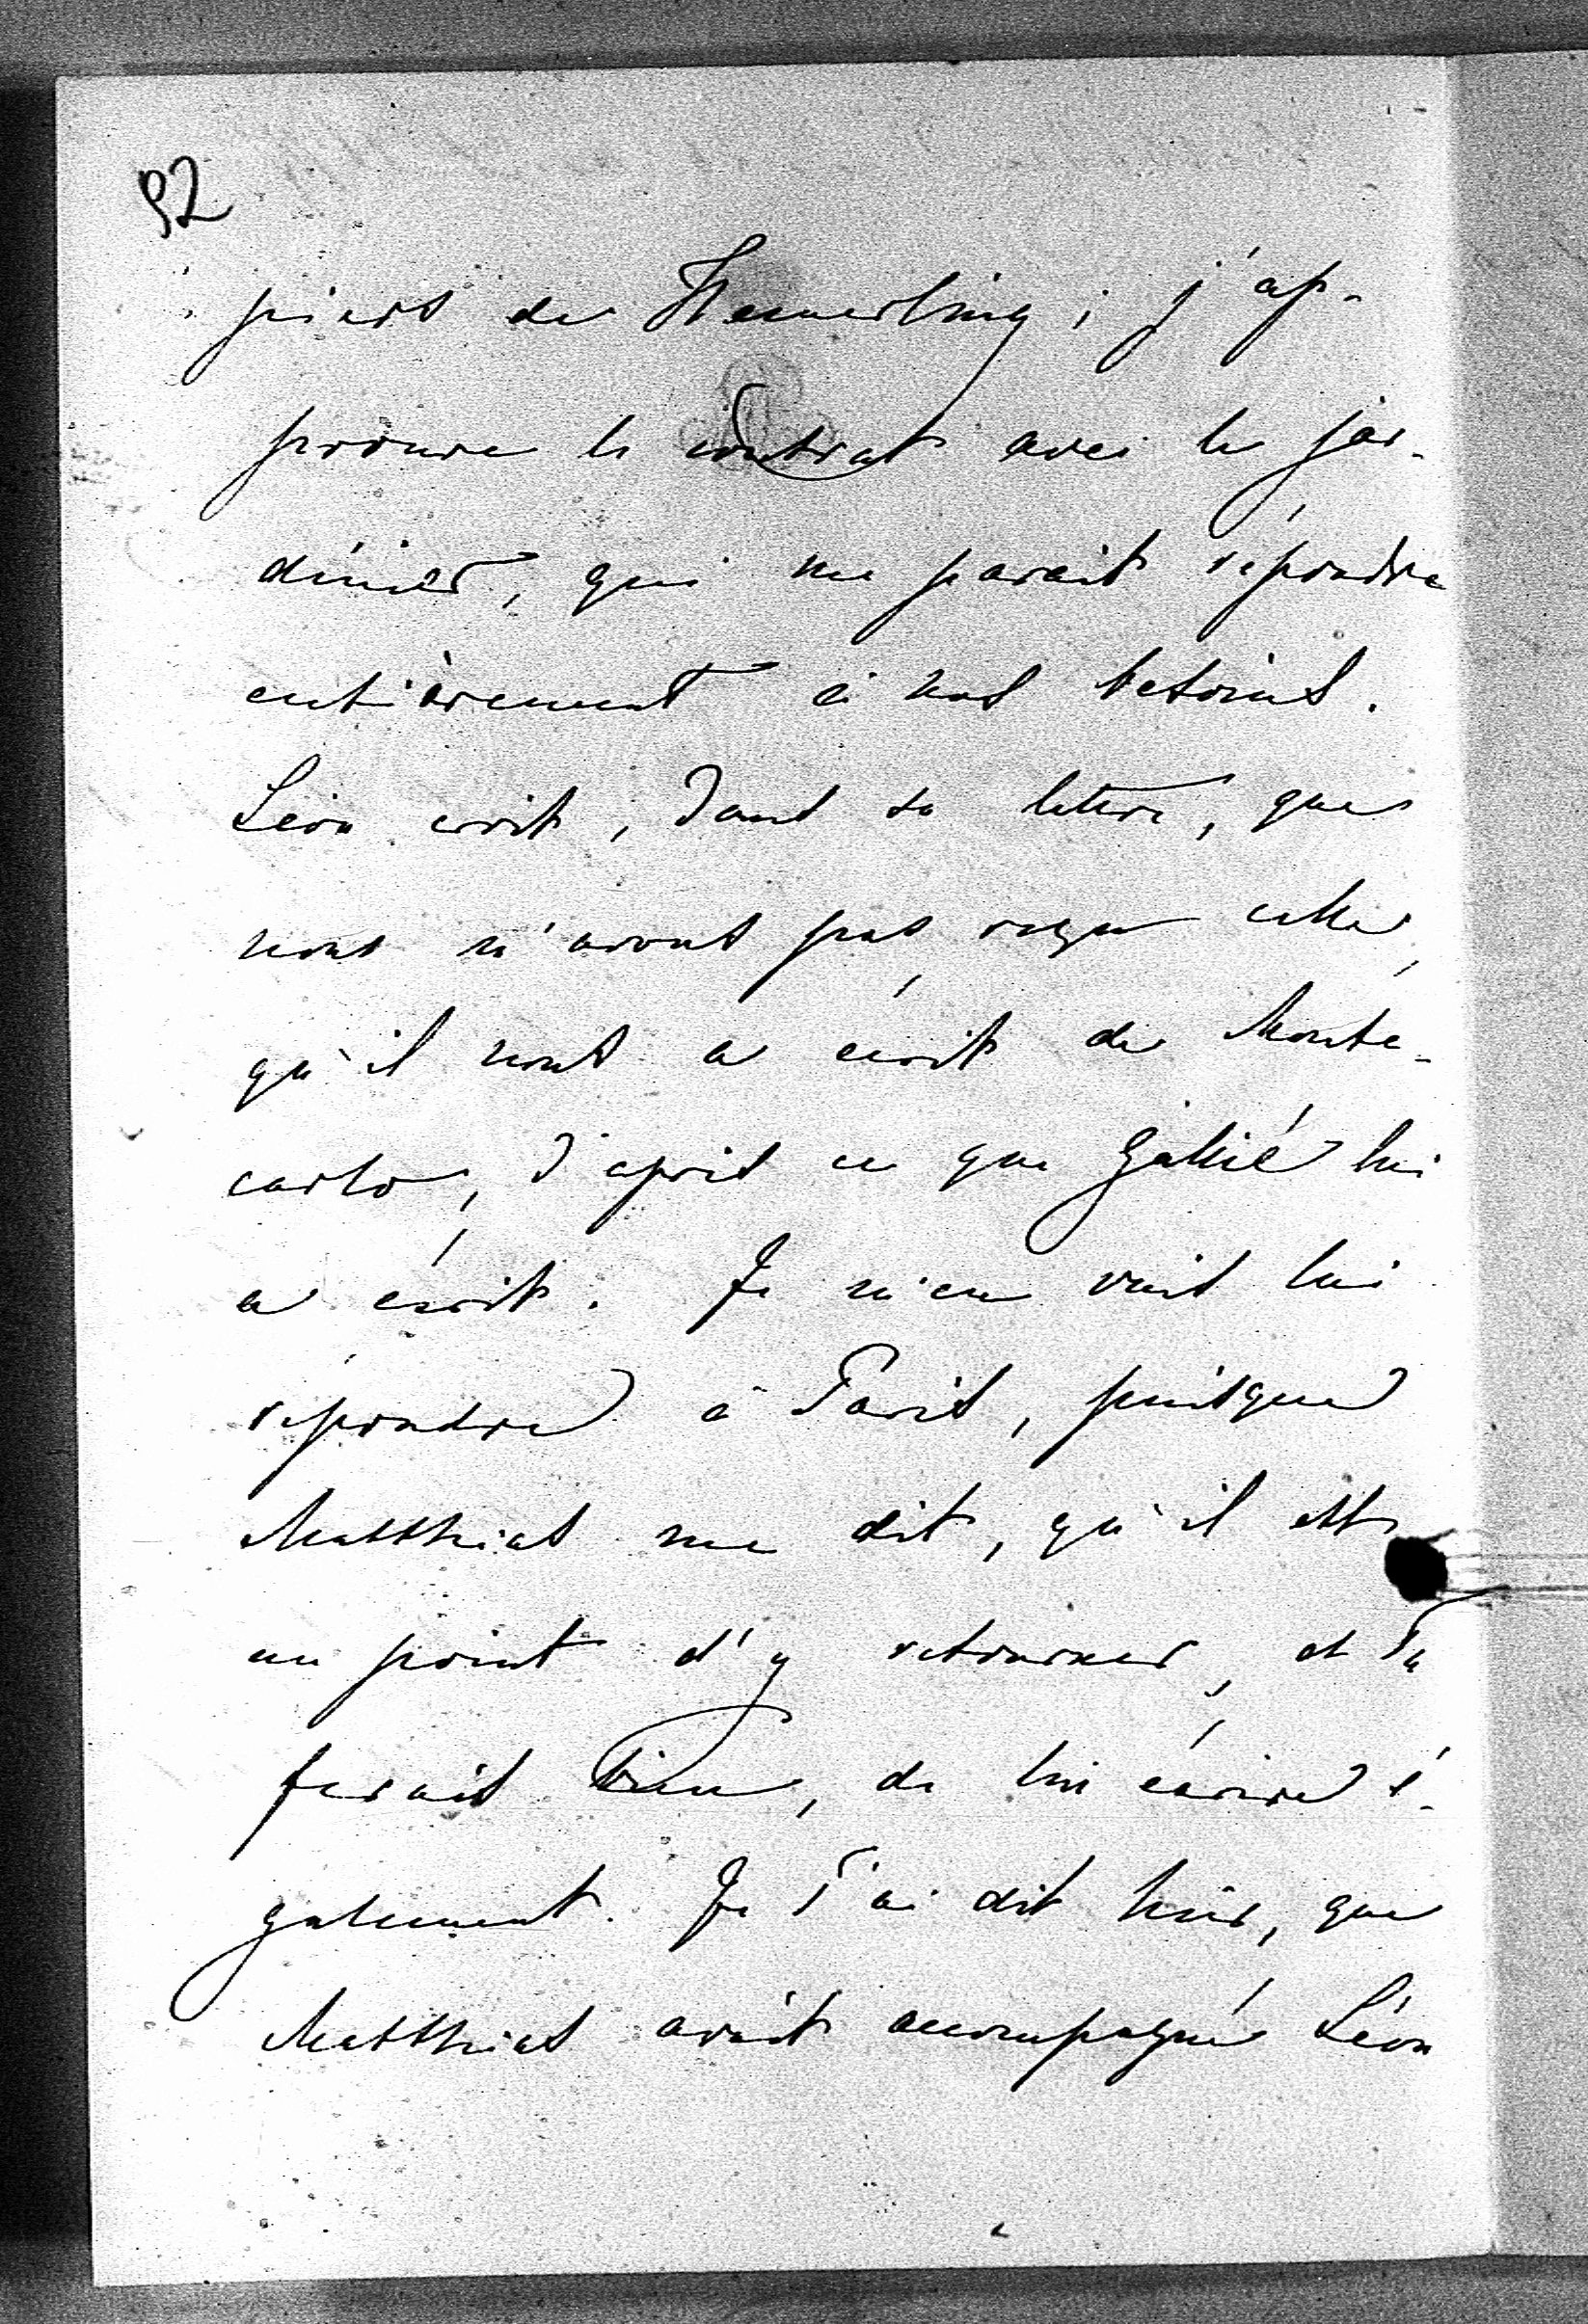 92
piers de Hemerling ; j'ap-
prouve le contrat avec le jar-
dinier, qui me parait répondre
entièrement à nos besoins.
Léon écrit, dans sa lettre, que
nous n'avons pas reçu celle,
qu'il nous a écrit de Monte-
carlo, d'après ce que Gallié lui
a écrit. Je m'en vais lui
répondre à Paris, puisque
Matthias me dit, qu'il est
au point d'y retourner, et Tu
ferais bien, de lui écrire é-
galement. Je T'ai dit hier, que
Matthias avait accompagné Léon